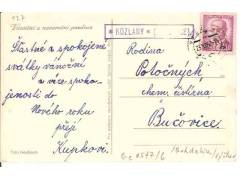 127
Vánoční a novoroční pozdrav
Šťastné a spokojené
svátky vánoční
a více spoko-
jenosti do
Nového roku
přejí
Kupkovi
* KOZLANY
Rodina
Potočných
chem. čistírna
Bučovice